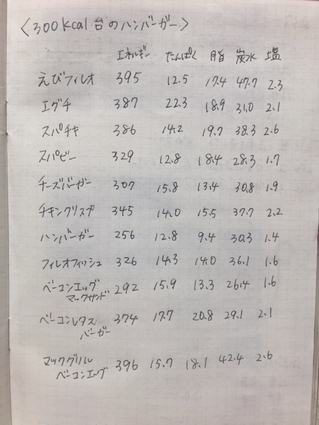 〈300kcal台のハンバーガー〉
エネルギー たんぱく 脂 炭水 塩
えびフィレオ 395 12.5 17.4 47.7 2.3
エグチ 387 22.3 18.9 31.0 2.1
スパチキ 386 14.2 19.7 38.3 2.6
スパビー 329 12.8 18.4 28.3 1.7
チーズバーガー 307 15.8 13.4 30.8 1.9
チキンクリスプ 345 14.0 15.5 37.7 2.2
ハンバーガー 256 12.8 9.4 30.3 1.4
フィレオフィッシュ 326 14.3 14.0 36.1 1.6
ベーコンエッグ
マックサンド 292 15.9 13.3 26.4 1.6
ベーコンレタス
バーガー 374 17.7 20.8 29.1 2.1
マックグリル
ベーコンエッグ 396 15.7 18.1 42.4 2.6